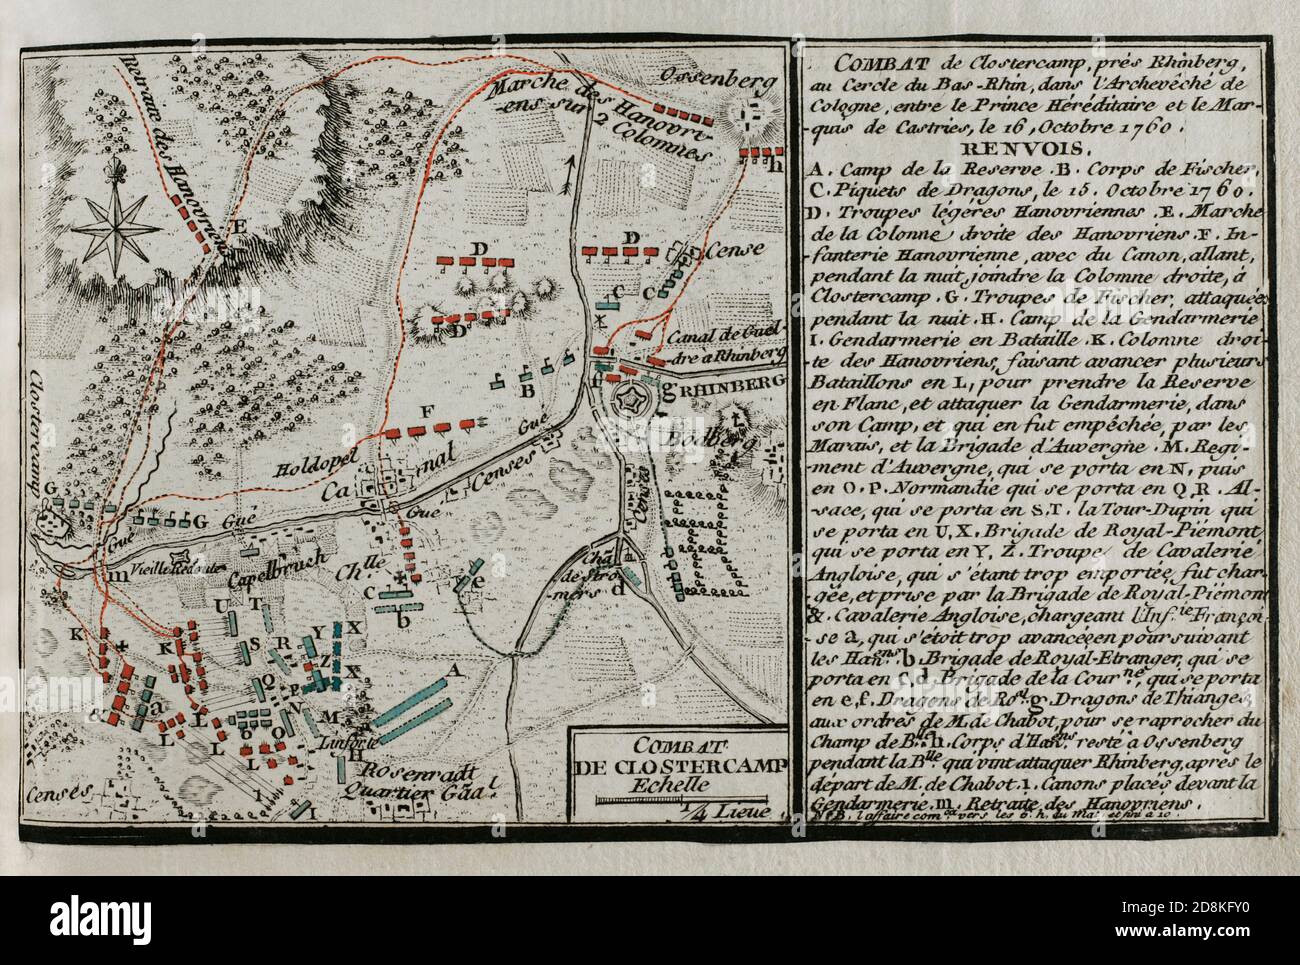 Retraite des Hanovriens
Marche des Hanovri-
ens sur 2 Colomnes
Ossenberg
h
E
D
D
Cense
C
C
D
Canal de Guel-
dre a Rhinberg
B
f
g
RHINBERG
F
Gué
Bodberg
Holdopel
Canal
Censes
Clostercamp
G
G
Gué
Gué
Gué
m
Vieille Redoute
Capelbruch
Ch.lle
e
Chau
de Stro-
mers
d
C
b
U
T
K
K
S
R
Y
X
Z
A
Q
P
X
&
a
N
M
L
L
L
b
O
L
Linforte
H
Rosenradt
Quartier Gãal.
Censes
1
I
COMBAT
DE CLOSTERCAMP
Echelle
1/4 Lieue
COMBAT de Clostercamp, prés Rhinberg,
au Cercle du Bas-Rhin, dans l'Archevêché de
Cologne, entre le Prince Héréditaire et le Mar-
quis de Castries, le 16, Octobre 1760.
RENVOIS.
A. Camp de la Reserve. B. Corps de Fischer,
C. Piquets de Dragons, le 15. Octobre 1760.
D. Troupes légéres Hanovriennes. E. Marche
de la Colonne droite des Hanovriens. F. In-
fanterie Hanovrienne, avec du Canon, allant,
pendant la nuit, joindre la Colomne droite, à
Clostercamp. G. Troupes de Fischer, attaquées
pendant la nuit. H. Camp de la Gendarmerie
I. Gendarmerie en Bataille. K. Colomne droi-
te des Hanovriens, faisant avancer plusieurs
Bataillons en L, pour prendre la Reserve
en Flanc, et attaquer la Gendarmerie, dans
son Camp, et qui en fut empêchée, par les
Marais, et la Brigade d'Auvergne. M. Regi-
ment d'Auvergne, qui se porta en N, puis
en O. P. Normandie qui se porta en Q, R. Al-
sace, qui se porta en S. T. la Tour-Dupin qui
se porta en U, X. Brigade de Royal-Piémont,
qui se porta en Y, Z. Troupe de Cavalerie
Angloise, qui s'étant trop emportée, fut char-
gée, et prise par la Brigade de Royal-Piémont
&. Cavalerie Angloise, chargeant l'Inf.ie Françoi-
se a, qui s'étoit trop avancée, en poursuivant
les Han.ens b. Brigade de Royal-Etranger, qui se
porta en C, d. Brigade de la Cour.ne, qui se porta
en e, f. Dragons de Ro.l g. Dragons de Thianges,
aux ordres de M. de Chabot, pour se raprocher du
Champ de B.lle h. Corps d'Han.ens resté a Ossenberg
pendant la B.lle qui vint attaquer Rhinberg, après le
départ de M. de Chabot. 1. Canons placés devant la
Gendarmerie. m. Retraite des Hanovriens.
N.B. l'affaire com.ca vers les 6. h. du Mat. et fini a 10.
alamy
Image ID: 2D8KFY0
www.alamy.com